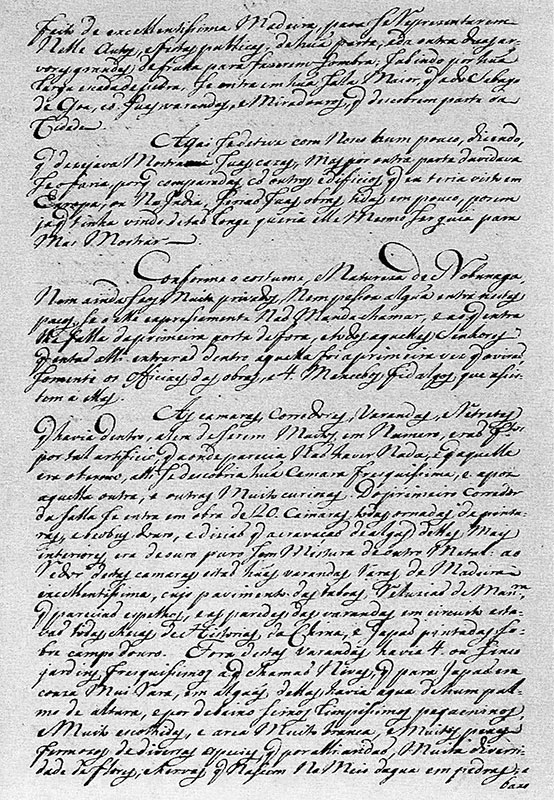 feito de excellentissima Madeira, para se Representarem
Nelle Autos, e festas publicas, de hũa parte, e da outra duas ar-
vores grandes, de fruita para fazerem sombra, subindo por hũa
larga escada de pedra, se entra em hũa salla Maior, q̃ a do Sabayo
de Goa, cõ suas varandas, e Miradouros, q̃ descobrem parte da
Cidade
Aqui se deteve com Nosco hum pouco, dizendo,
q̃ desejava Mostrar suas cazas, Mas por outra parte duvidava
se o faria, porq̃ comparadas cõ outros edificios, q̃ eu teria visto em
Europa, ou Na India, serião suas obras tidas em pouco, porem
ja q̃ tinha vindo de tão longe queria elle Mesmo ser guia para
Mas Mostrar
Conforme o costume, e Natureza de Nobunaga,
Nem ainda seos Muito privados, Nem pessoa algũa entra nestes
paços, se o elle expressamente Não Manda chamar, e ao q̃ entra
lhe falla da primeira porta de fora, e todos aquelles Senhores
q̃ entaõ alli entraraõ dentro aquella foi a primeira vez q̃ o viraõ
somente os officiaes das obras, e 4. Mancebos fidalgos, que assis-
tem a elles
As camaras, Corredores, Varandas, e Retretes
q̃ havia dentro, alem de serem Muitos em Numero, eraõ
por tal artificio, q̃ aonde parecia Naõ haver Nada, e q̃ aquelle
era o termo, alli se descobria hũa Camara fresquissima, e apoz
aquella outra, e outras Muito curiosas. Do primeiro Corredor
da salla se entra em obra de 20. Camaras, todas ornadas de pintu-
ras, e beobus d'ouro, e diziaõ q̃ a cravação de algũas dellas Mais
interiores era de ouro puro sem Mistura de outro Metal: ao
Redor destas camaras estaõ hũas varandas rasas, de Madeira
excellentissima, cujo pavimento das taboas, Reluziaõ de Manra
q̃ pareciaõ espelhos, e as paredes das varandas em circuito esta-
vaõ todas cheias de Historias, da China, e Japaõ pintadas so-
bre campo d'ouro. Fora destas varandas havia 4. ou sinco
jardins, fresquissimos a q̃ chamaõ Nivas, q̃ para Japaõ era
couza Mui Rara, em algũas dellas havia agua de hum pal-
mo de altura, e por debaixo seixos limpissimos pequeninos,
e Muito escolhidos, e area Muito branca, e Muitos peixes
fermozos de diversas especies, q̃ por alli andaõ, Muita diversi-
dade de flores, e hervas q̃ Nascem No Meio dagua em pedras, e